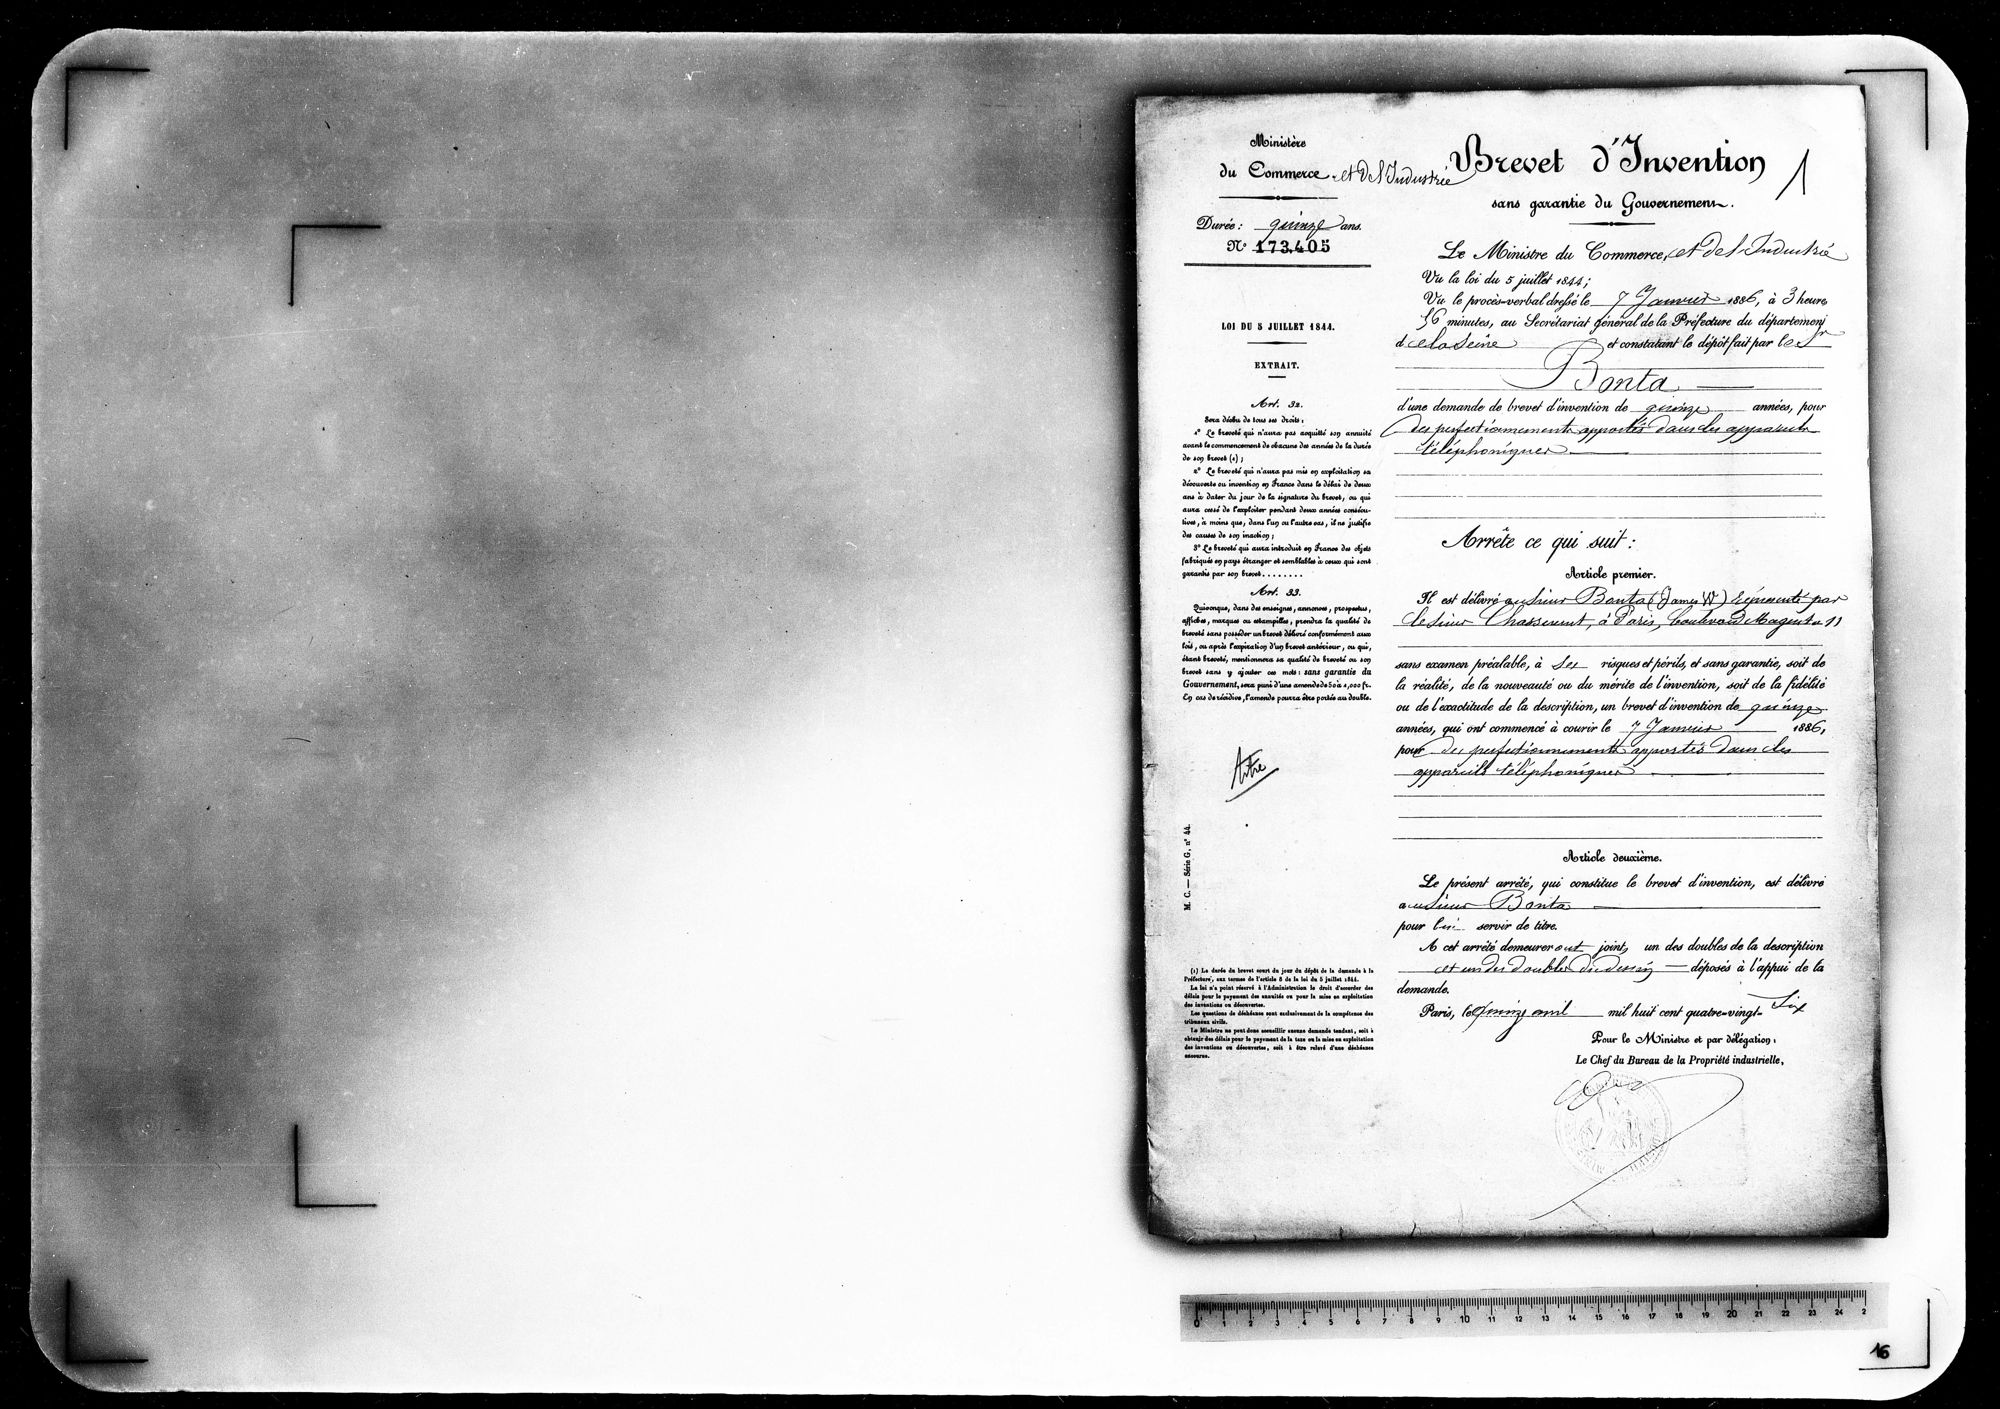 Ministère
du Commerce et de l'Industrie
Durée : quinze ans.
N° 173,405
LOI DU 5 JUILLET 1844.
EXTRAIT.
Art. 32.
Sera déchu de tous ses droits :
1° Le breveté qui n'aura pas acquitté son annuité
avant le commencement de chacune des années de la durée
de son brevet (1) ;
2° Le breveté qui n'aura pas mis en exploitation sa
découverte ou invention en France dans le délai de deux
ans à dater du jour de la signature du brevet, ou qui
aura cessé de l'exploiter pendant deux années consécu-
tives, à moins que, dans l'un ou l'autre cas, il ne justifie
des causes de son inaction ;
3° Le breveté qui aura introduit en France des objets
fabriqués en pays étranger et semblables à ceux qui sont
garantis par son brevet . . . . . . . .
Art. 33.
Quiconque, dans des enseignes, annonces, prospectus,
affiches, marques ou estampilles, prendra la qualité de
breveté sans posséder un brevet délivré conformément aux
lois, ou après l'expiration d'un brevet antérieur, ou qui,
étant breveté, mentionnera sa qualité de breveté ou son
brevet sans y ajouter ces mots : sans garantie du
Gouvernement, sera puni d'une amende de 50 à 1,000 fr.
En cas de récidive, l'amende pourra être portée au double.
Titre
M. C. — Série G, n° 44.
(1) La durée du brevet court du jour du dépôt de la demande à la
Préfecture, aux termes de l'article 8 de la loi du 5 juillet 1844.
La loi n'a point réservé à l'Administration le droit d'accorder des
délais pour le payement des annuités ou pour la mise en exploitation
des inventions ou découvertes.
Les questions de déchéance sont exclusivement de la compétence des
tribunaux civils.
Le Ministre ne peut donc accueillir aucune demande tendant, soit à
obtenir des délais pour le payement de la taxe ou la mise en exploitation
des inventions ou découvertes, soit à être relevé d'une déchéance
encourue.
Brevet d'Invention
1
sans garantie du Gouvernement.
Le Ministre du Commerce, et de l'Industrie
Vu la loi du 5 juillet 1844 ;
Vu le procès-verbal dressé le 7 Janvier 1886, à 3 heures
56 minutes, au Secrétariat général de la Préfecture du département
de la Seine et constatant le dépôt fait par le S
Bonta
d'une demande de brevet d'invention de quinze années, pour
des perfectionnements apportés dans les appareils
téléphoniques
Arrête ce qui suit :
Article premier.
Il est délivré au sieur Bonta (James W) représenté par
le sieur Chassevent, à Paris, boulevard Magenta 11
sans examen préalable, à ses risques et périls, et sans garantie, soit de
la réalité, de la nouveauté ou du mérite de l'invention, soit de la fidélité
ou de l'exactitude de la description, un brevet d'invention de quinze
années, qui ont commencé à courir le 7 Janvier 1886,
pour des perfectionnements apportés dans les
appareils téléphoniques
Article deuxième.
Le présent arrêté, qui constitue le brevet d'invention, est délivré
au sieur Bonta
pour lui servir de titre.
A cet arrêté demeureront joints un des doubles de la description
et un des doubles du dessin déposés à l'appui de la
demande.
Paris, le quinze avril mil huit cent quatre-vingt-six
Pour le Ministre et par délégation :
Le Chef du Bureau de la Propriété industrielle,
0 1 2 3 4 5 6 7 8 9 10 11 12 13 14 15 16 17 18 19 20 21 22 23 24 2
16